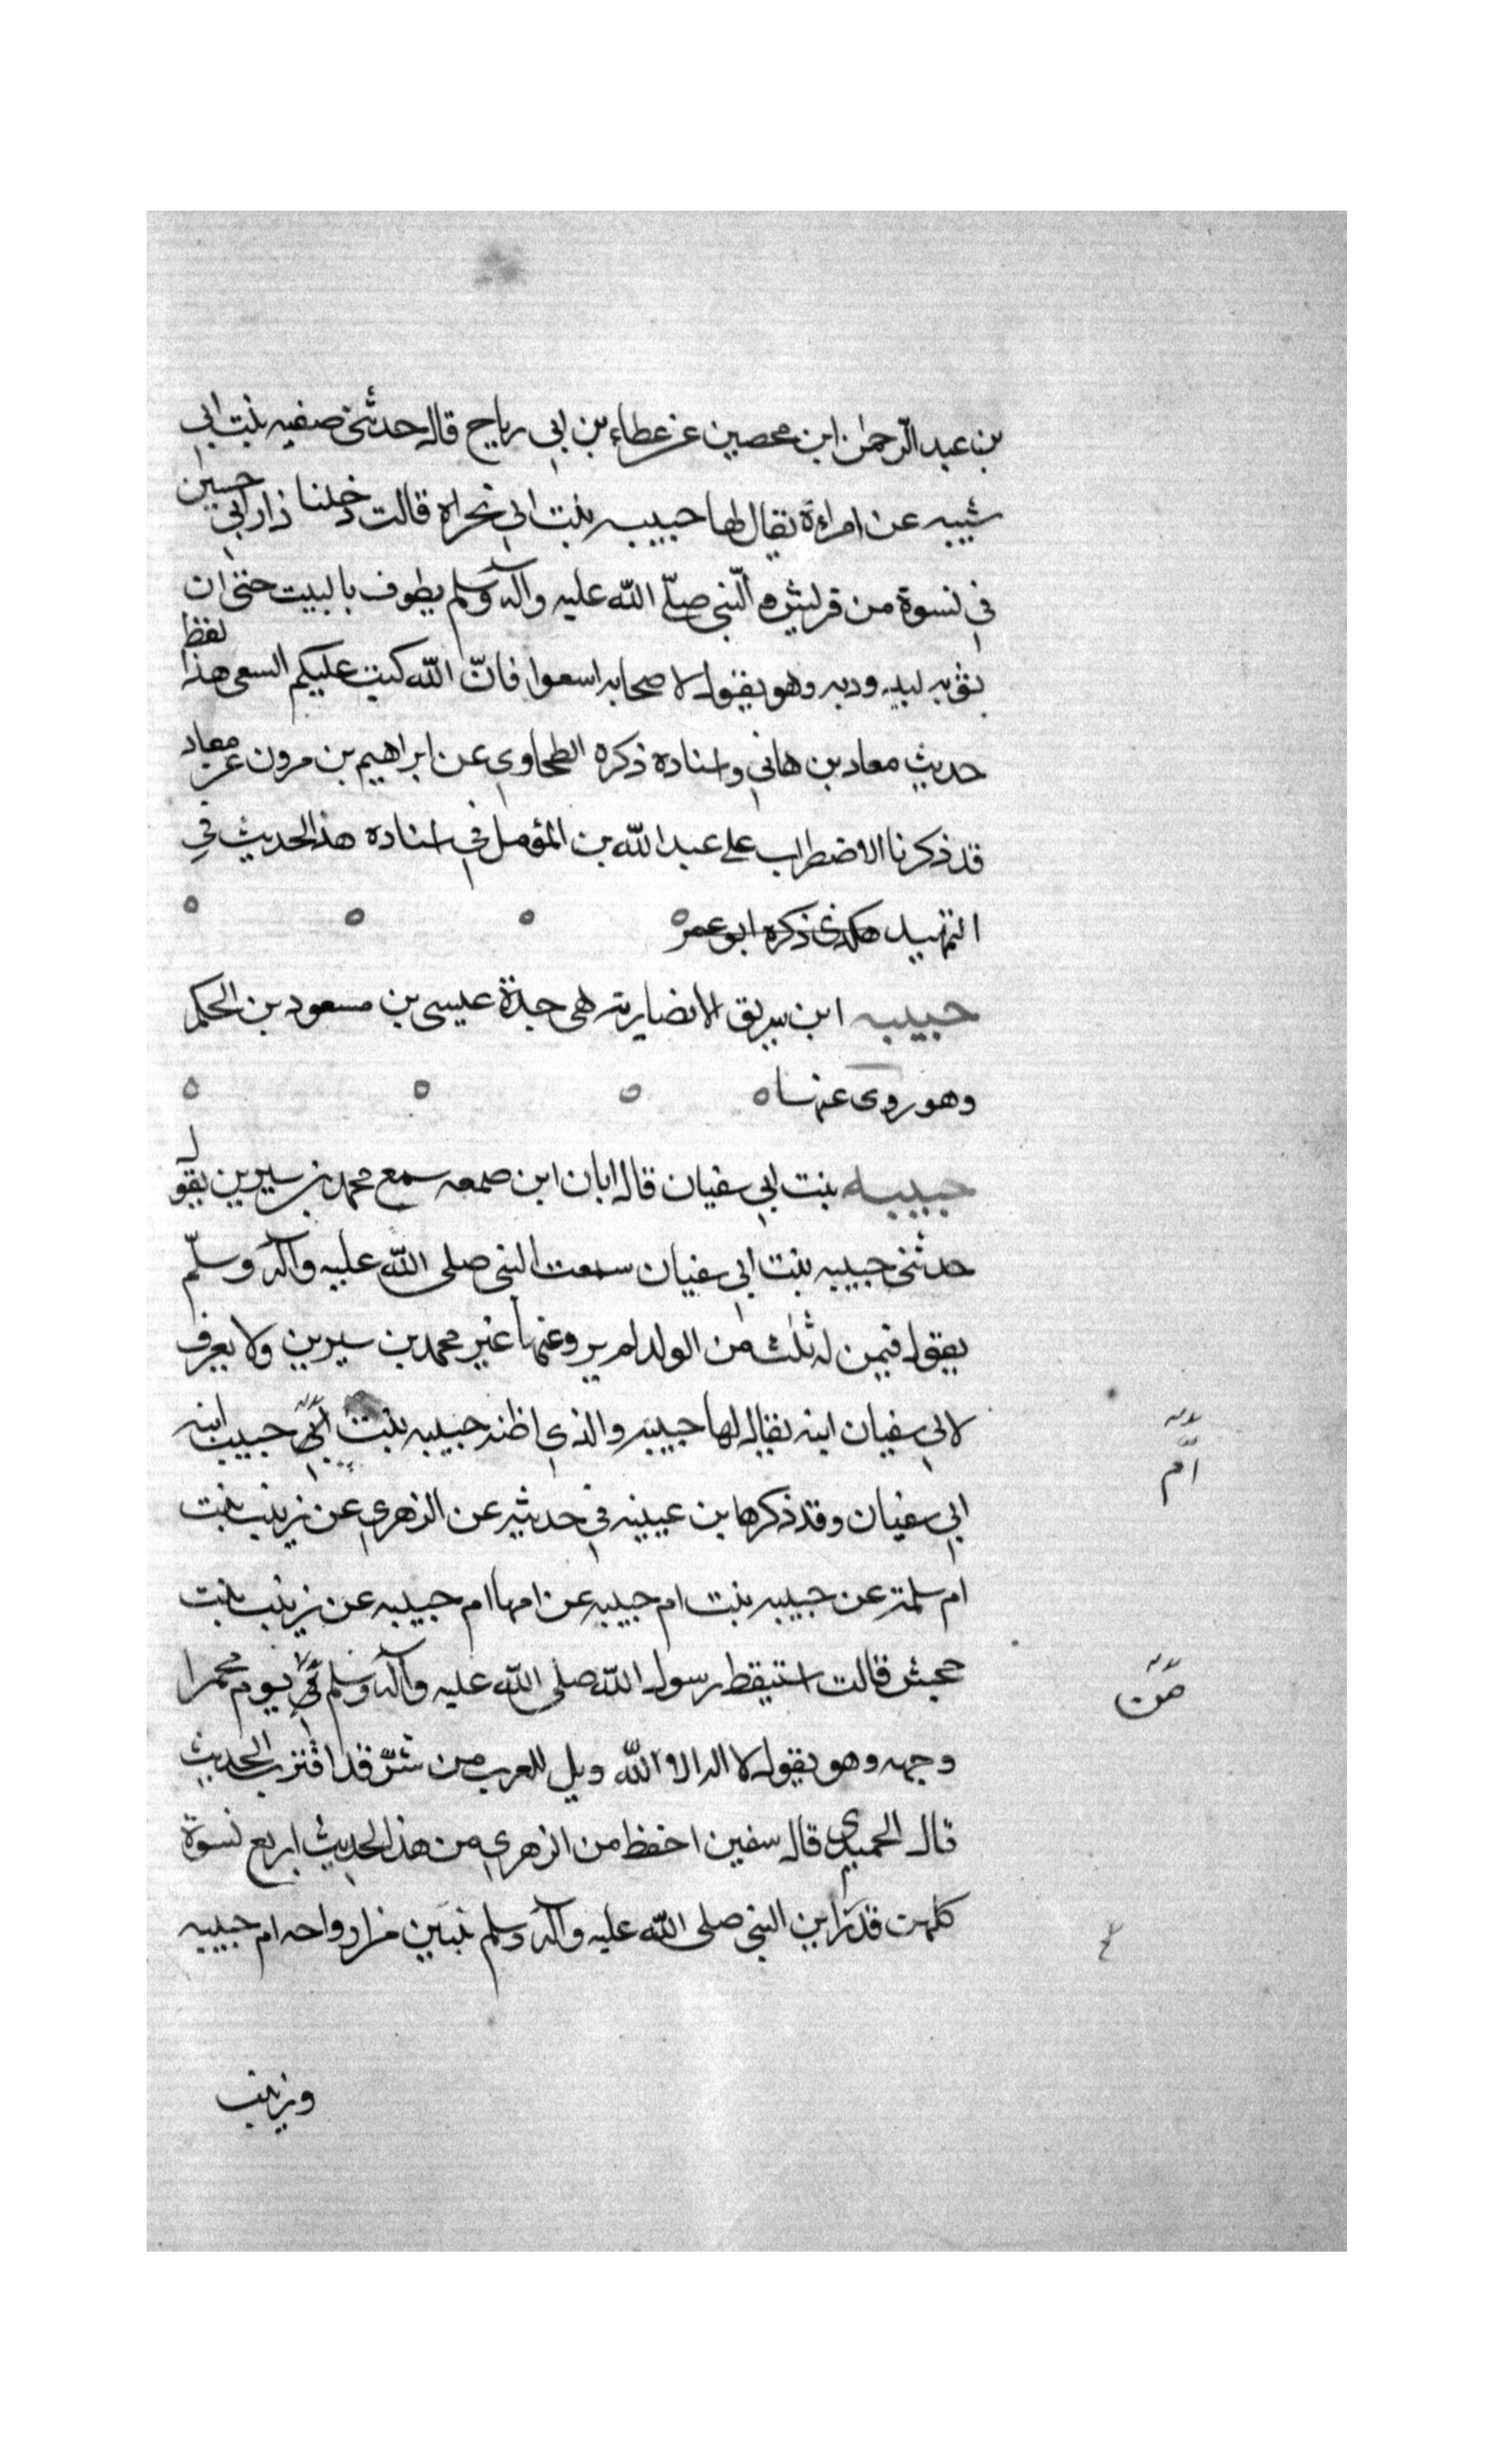 بن عبد الرّحمٰن ابن محصين عن عطاء بن ابى رياح قال حدثنى صفيه بنت ابى
شيبه عن امراءة يقال لها حبيبه بنت ابى نجراه قالت دخلنا دار ابى حسين
فى نسوة من قريش و النّبى صلّى الله عليه وآله وسلم يطوف بالبيت حتى ان
ثوبه ليد وربه وهو يقول لاصحابه اسعوا فانّ الله كتب عليكم السعى هذا لفظ
حديث معاد بن هانى واسناده ذكره الطحاوى عن ابراهيم بن مرون عن معاد
قد ذكرنا الاضطراب على عبد الله بن المؤمل فى اسناده هذا لحديث فى
التمهيد هكذى ذكره ابو عمر
حبيبه ابن سريق الانصاريه هى جدة عيسى بن مسعود بن الحكم
وهو روى عنها
حبيبه بنت ابى سفيان قال ابان ابن صمعه سمع محمد بن سيرين يقول
حدثنى حبيبه بنت ابى سفيان سمعت النبى صلى الله عليه وآله وسلّم
يقول فيمن له ثلث من الولد لم يرو عنها غير محمد بن سيرين ولا يعرف
لابى سفيان ابنه يقال لها حبيبه والذى اظنه حبيبه بنت ابى حبيب ابنه
امّ
ابى سفيان وقد ذكرها بن عيينه فى حديثه عن الزهرى عن زينب بنت
ام سلمة عن حبيبه بنت ام حبيبه عن امها ام حبيبه عن زينب بنت
جحش قالت استيقظ رسول الله صلى الله عليه وآله وسلم فى يوم محمرا
من
وجهه وهو يقول لا اله الا الله ويل للعرب من شرّ قد اقترب الحديث
قال الحميدى قال سفين احفظ من الزهرى من هذا لحديث اربع نسوة
كلهن قد راين النبى صلى الله عليه وآله وسلم ثنتين من ازواحه ام حبيبه
وزينب